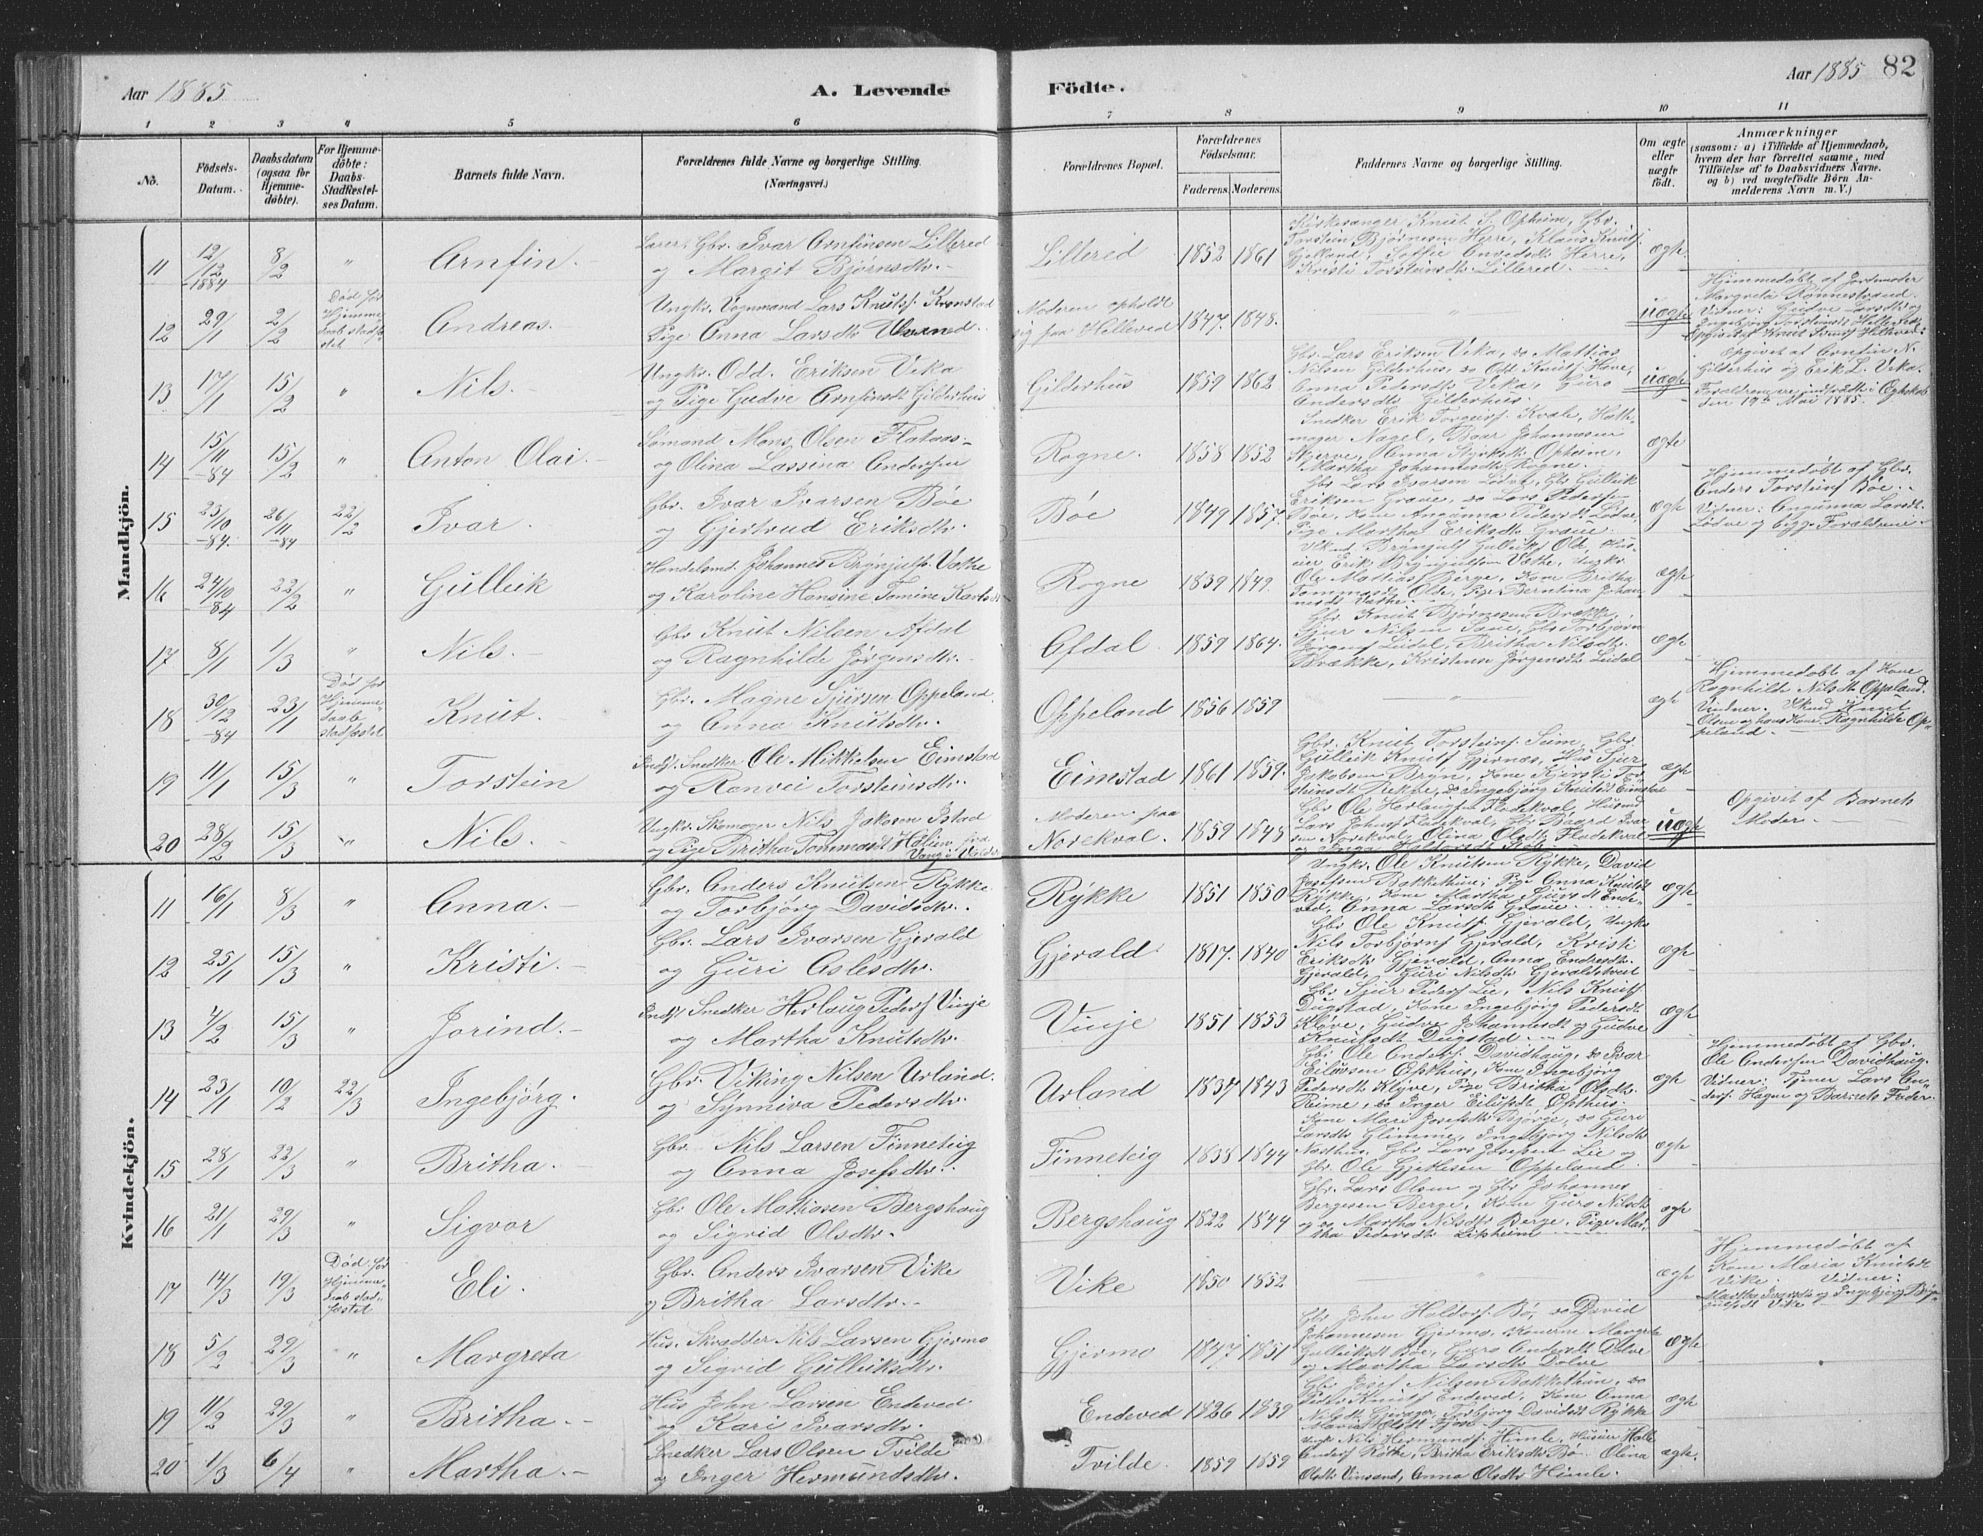 Aar 1885 A. Levende Födte. Aar 1885 82
1 2 3 4 5 6 7 8 9 10 11
No. Födsels-Datum. Daabsdatum (ogsaa for Hjemme-döbte). For Hjemme-döbte: Daabs-Stadfæstel-ses Datum. Barnets fulde Navn. Forældrenes fulde Navne og borgerlige Stilling. (Næringsvei.) Forældrenes Bopæl. Forældrenes Födselsaar. Faderens. Moderens. Faddernes Navne og borgerlige Stilling. Om ægte eller uægte födt. Anmærkninger (saasom: a) i Tilfælde af Hjemmedaab, hvem der har forrettet samme, med Tilföielse af to Daabsvidners Navne. og b) ved uægtefödte Börn An-melderens Navn m. V.)
Mandkjön.
11 12/12 1884 8/2 " Arnfin. Gbr. Ivar Arnfinsen Lillered og Margit Bjørnsdtr. Lillered 1852 1861 Kirkesanger Knut S. Opheim, Gbr. Torstein Bjørnesen Herre, Klaus Knuts. Gjelland, Kristi Torsteinsdtr Lillered. ægte
12 29/1 2/2 Død før Hjemmedaab stadfæstet Andreas. Ungkr. Vognmand Lars Knuts. Kronstad Pige Anna Larsdtr Moderen opholdt sig paa Helleved 1847. 1848. " uægte Hjemmedøbt af Jordmoder Margreta Rønnestrand. Vidner: Gudve Larsdtr og Ingebjørg Torsteinsdtr Helleved
13 17/1 15/2 " Nils. Ungkr. Odd. Eriksen Vika og Pige Gudve Arnfinsdtr Gilderhus Gilderhus 1859 1862 Gbr. Lars Eriksen Vika, do Mattias Nilsen Gilderhus, do Odd Knuts. Hove, Anna Pedersdtr Vika, Guro Andersdtr Gilderhus. uægte Opgivet af Arnfin N. Gilderhus og Erik L. Vika. Forældrene indtrådt i Egteskab den 19de Mai 1885.
14 15/11 -84 15/2 " Anton Olai. Sømand Mons Olsen Flataas og Olina Lassina Andersen Rogne. 1858 1852 Snedker Erik Torgeirs. Kvale, Hatte-mager Nagel, Baar Johannesen Skjerve, Anna Styrksdtr Opheim, Martha Johannesdtr Rogne. ægte
15 23/10 -84. 26/11 -84 22/2 Ivar. Gbr. Ivar Ivarsen Bøe og Gjertrud Eriksdtr. Bøe 1849 1857. Gbr Lars Ivarsen Lødve, Gbr Gulleik Eriksen Græve, do Lars Pedersen Bøe, Kone Ananna Pedersdtr Lødve, Pige Martha Eriksdtr Græve. ægte Hjemmedøbt af Gbr. Anders Torsteins. Bøe. Vidner: Angunna Larsdt. Lødve og begge Forældrene
16 24/10 -84 22/2 " Gulleik Handelsmd. Johannes Brynjulfs. Væthe og Karoline Hansine Tomine Karlsdtr Rogne 1839 1849. Brynjulf Gulleiks. Olde, Hus-mer Erik Brynjulfsen Væthe, Ungkr. Ole Mattias Berge, Kone Britha Tommasdtr Olde, Pige Berntina Johan-nesdtr Væthe. ægte
17 8/1 1/3 " Nils. Gbr Knut Nilsen Afdal og Ragnhilde Jørgensdtr. Afdal. 1859 1864. Gbr. Knut Bjørnesen Brække, Sjur Nilsen Tvne, Gbr Torbjørn Jørgens. Leidal, Britha Nilsdtr Brække, Kristina Jørgensdtr Leidal ægte
18 30/12 -84 23/1 Død før Hjemme-daab stadfæstet Knut. Gbr. Magne Sjursen Oppeland. og Anna Knutsdtr. Oppeland 1856 1859 " ægte Hjemmedøbt af Kone Ragnhilde Nilsdtr Oppeland. Vidner. Knut Olsen og hans Kone Ragnhilde Op-peland.
19 11/1 15/3 " Torstein Inds. Snedker Ole Mikkelsen Eimstad og Ranvei Torsteinsdtr. Eimstad 1861 1859. Gbr. Knut Torsteins. Seim, Gbr. Gulleik Knuts. Gjernæs, Hus Sjur Jakobsen Bryn, Kone Kjersti Tor-steinsdtr Rekve, do Ingebjørg Knutsdtr Eimstad ægte
20 28/2 15/3 " Nils. Ungkr. Skomager Nils Jakobsen Istad og Pige Britha Tommasdt Hølien, fra Vang i Valdres Moderen paa Norekval. 1859 1848 Gbr Ole Herlaugsen Flatekval, Husmd Lars Johns. Flatekval, Gbr Baard Ivar-sen Norekval, Olina Olsdtr Flatekval uægte Opgivet af Barnets Moder.
Kvindekjön.
11 16/1 8/3 " Anna. Gbr. Anders Knutsen Rykke. og Torbjørg Davidsdtr. Rykke 1851 1850 Ungkr. Ole Knutsen Rykke, David Josefsen Bakkethun, Pige Anna Knutsdt Rykke, Kone Martha Sjursdt Ende-ved, Anna Larsdtr Græve. ægte
12 25/1 15/3 " Kristi. Gbr. Lars Ivarsen Gjerald og Guri Aslesdtr. Gjerald 1817. 1840 Gbr Ole Knuts. Gjerald, Ungkr Nils Torbjørns. Gjerald, Kristi Eriksdtr Gjerald, Anna Endresdtr. Gjerald, Guri Nilsdtr Gjeraldstveit ægte
13 4/2 15/3 " Jorind. Inds. Snedker Herlaug Peders. Vinje og Martha Knutsdtr. Vinje 1851 1853 Gbr. Sjur Peders. Lie, Nils Knuts. Dugstad, Kone Ingebjørg Pedersdt Kløve, Gudve Johannesdt og Gudve Knutsdt Dugstad. ægte
14 23/1 10/2 22/3 Ingebjørg. Gbr. Viking Nilsen Urland. og Synniva Pedersdtr. Urland 1837 1843 Gbr. Ole Anders. Davidhaug, do Ivar Eilevsen Opsthus, Kone Ingebjørg Pedersdt Klyve, Pige Britha Olsdtr. Reime, do Inger Eilevsdt Opsthus. ægte Hjemmedøbt af Gbr. Ole Andersen Davidhaug. Vidner: Tjener Lars An-ders. Hagen og Barnets Fader.
15 28/1 22/3 " Britha. Gbr. Nils Larsen Finneteig og Anna Josefsdtr. Finneteig 1838 1844 Kone Mari Josefsdtr Bjørge, do Guri Larsdtr Glimme, Ingebjørg Nilsdtr Næsthus, Gbr Lars Josefsen Lie og Gbr. Ole Gjetlesen Oppeland. ægte
16 21/1 29/3 " Sigvor Gbr Ole Mathiasen Bergshaug og Sigrid Olsdtr. Bergshaug 1822 1844 Gbr. Lars Olsen og Gbr Johannes Bergesen Berge, Kone Guro Nilsdtr og do Martha Nilsdtr Berge, Pige Mar-tha Pedersdtr ægte
17 14/3 19/3 Død før Hjemme-daab stad-fæstet Eli. Gbr. Anders Ivarsen Vike og Britha Larsdtr. Vike 1850 1852 " ægte Hjemmedøbt af Kone Maria Knutsdt Vike. Vidner: Martha Ivarsdt og Ingebjørg Vike
18 5/2 29/3 " Margreta Hus. Skrædder Nils Larsen Gjermo og Sigrid Gulleiksdtr. Gjermo 1847 1851 Gbr John Haldors. Bø, do David Johannesen Gjermo, Konerne Margreta Gulleiksdt Bøe, Guro Andersdt Dolve og Martha Larsdt Dolve ægte
19 11/2 29/3 " Britha. Hus John Larsen Endeved og Kari Ivarsdtr. Endeved 1826 1839 Gbr. Josef Nilsen Bakkethun, do Peder Knuts. Endeved, Kone Anna Nilsdt Gjerager, Torbjørg Davidsdt Rykke ægte
20 1/3 6/4 " Martha. Snedker Lars Olsen Tvilde og Inger Hermundsdtr. Tvilde 1859 1859 Ungk Nils Hermunds. Himle, Husmer Halle Anders. Røthe, Britha Eriksdtr Bø. Olina Olsdtr Vinsand, Anna Olsdtr Himle. ægte.